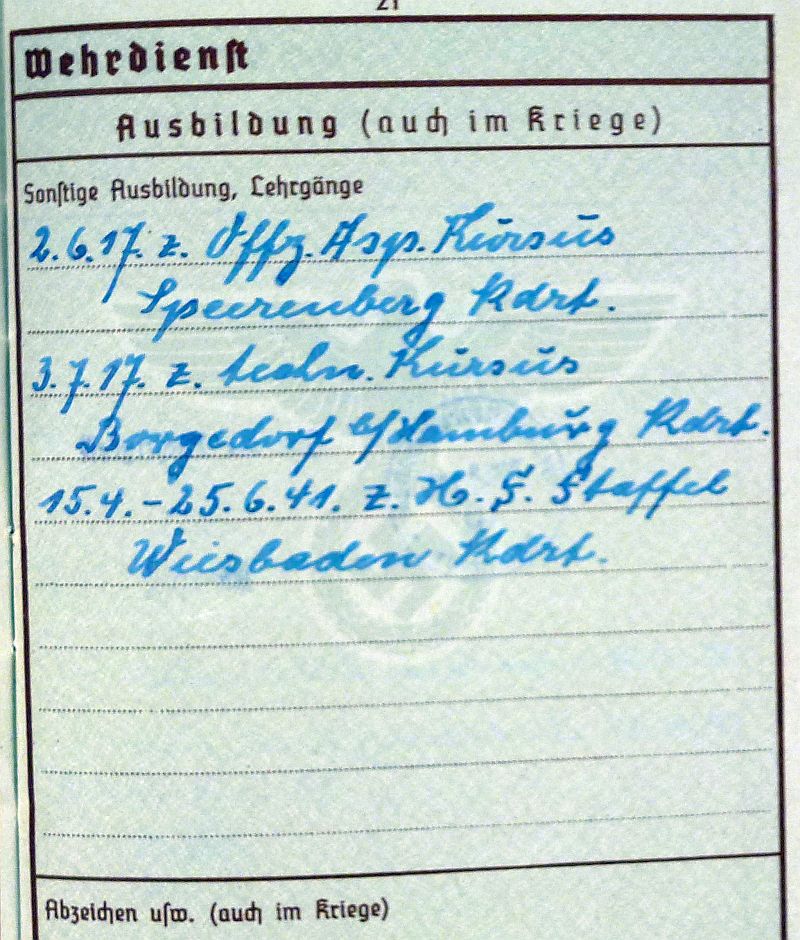 21
Wehrdienst
Ausbildung (auch im Kriege)
Sonstige Ausbildung, Lehrgänge
2.6.17. z. Offz. Asp. Kursus
Sperenberg Kdrt.
3.7.17. z. techn. Kursus
Bergedorf b/Hamburg Kdrt.
15.4.-25.6.41. z. H. F. Staffel
Wiesbaden Kdrt.
Abzeichen usw. (auch im Kriege)